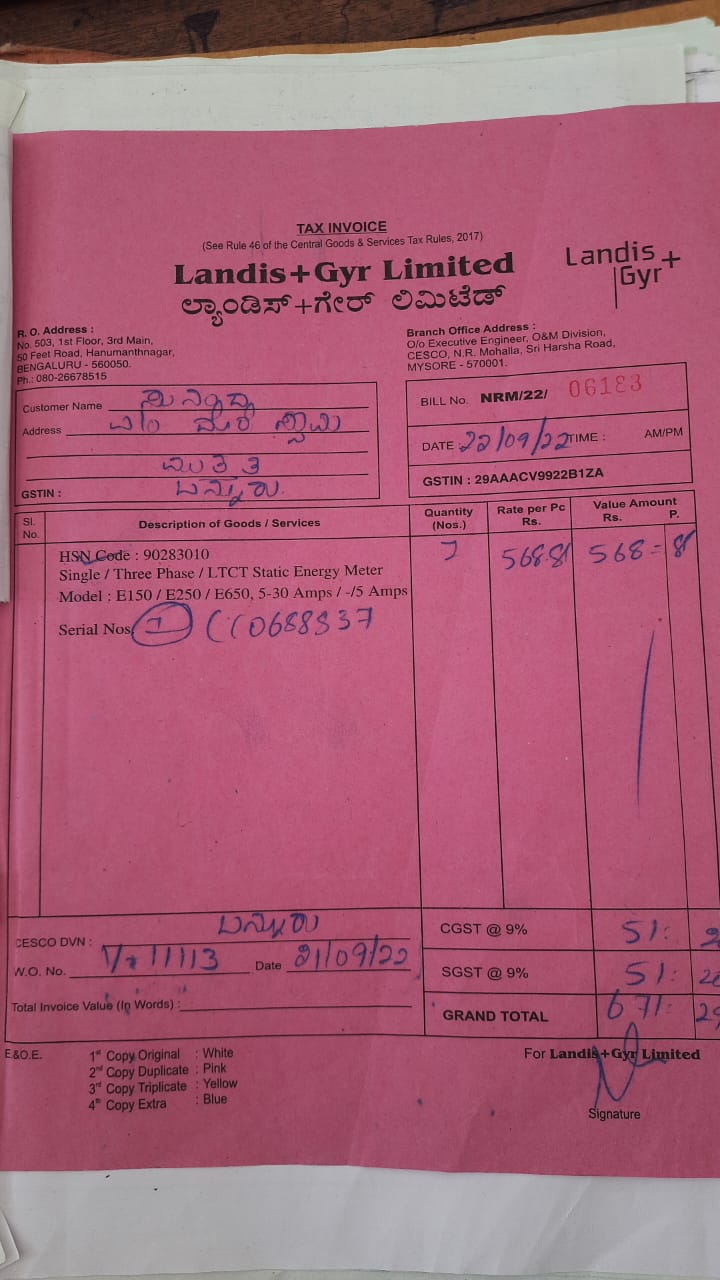 TAX INVOICE
(See Rule 46 of the Central Goods & Services Tax Rules, 2017)
Landis+Gyr Limited
ಲ್ಯಾಂಡಿಸ್+ಗೇರ್ ಲಿಮಿಟೆಡ್
Landis+
Gyr
R. O. Address :
No. 503, 1st Floor, 3rd Main,
50 Feet Road, Hanumanthnagar,
BENGALURU - 560050.
Ph.: 080-26678515
Branch Office Address :
O/o Executive Engineer, O&M Division,
CESCO, N.R. Mohalla, Sri Harsha Road,
MYSORE - 570001.
Customer Name
Address
GSTIN : ಬನ್ನೂರು.
BILL No. NRM/22/ 06183
DATE : 22/09/22 TIME : AM/PM
GSTIN : 29AAACV9922B1ZA
Sl. No. Description of Goods / Services Quantity (Nos.) Rate per Pc Rs. Value Amount Rs. P.
HSN Code : 90283010
Single / Three Phase / LTCT Static Energy Meter 568.81 568=81
Model : E150 / E250 / E650, 5-30 Amps / -/5 Amps
Serial Nos. 1
CESCO DVN : ಬನ್ನೂರು
W.O. No. 11113 Date 21/09/22
Total Invoice Value (In Words) :
CGST @ 9% 51:
SGST @ 9% 51:
GRAND TOTAL 671:
E.&O.E.
1st Copy Original : White
2nd Copy Duplicate : Pink
3rd Copy Triplicate : Yellow
4th Copy Extra : Blue
For Landis+Gyr Limited
Signature